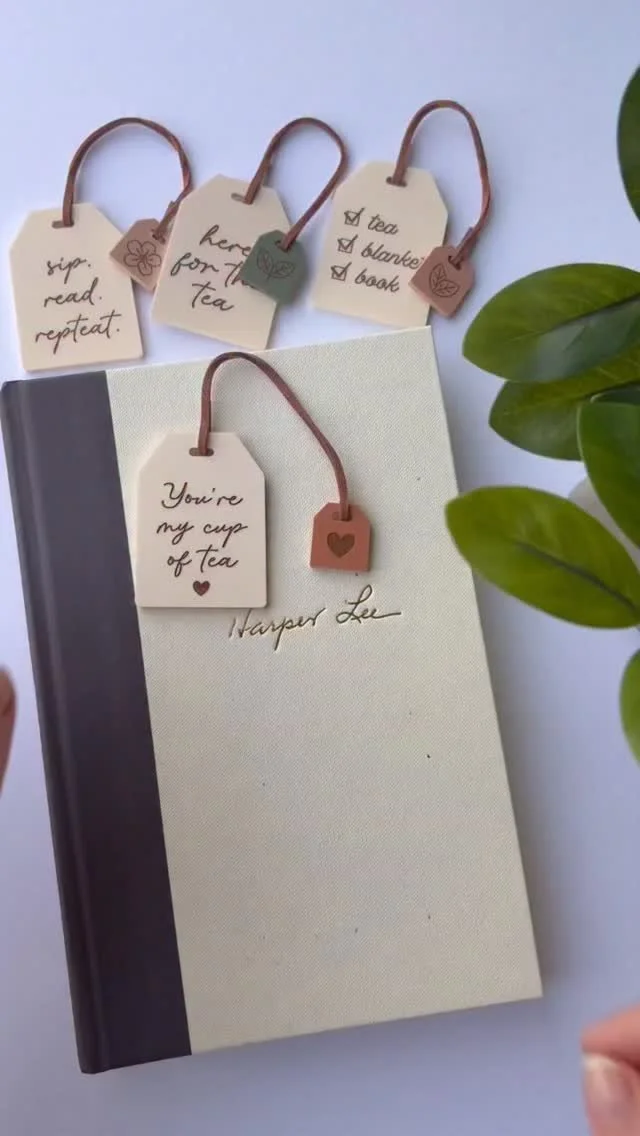 sip.
read.
repteat.
here
for the
tea
☑ tea
☑ blanket
☑ book
You're
my cup
of tea
Harper Lee